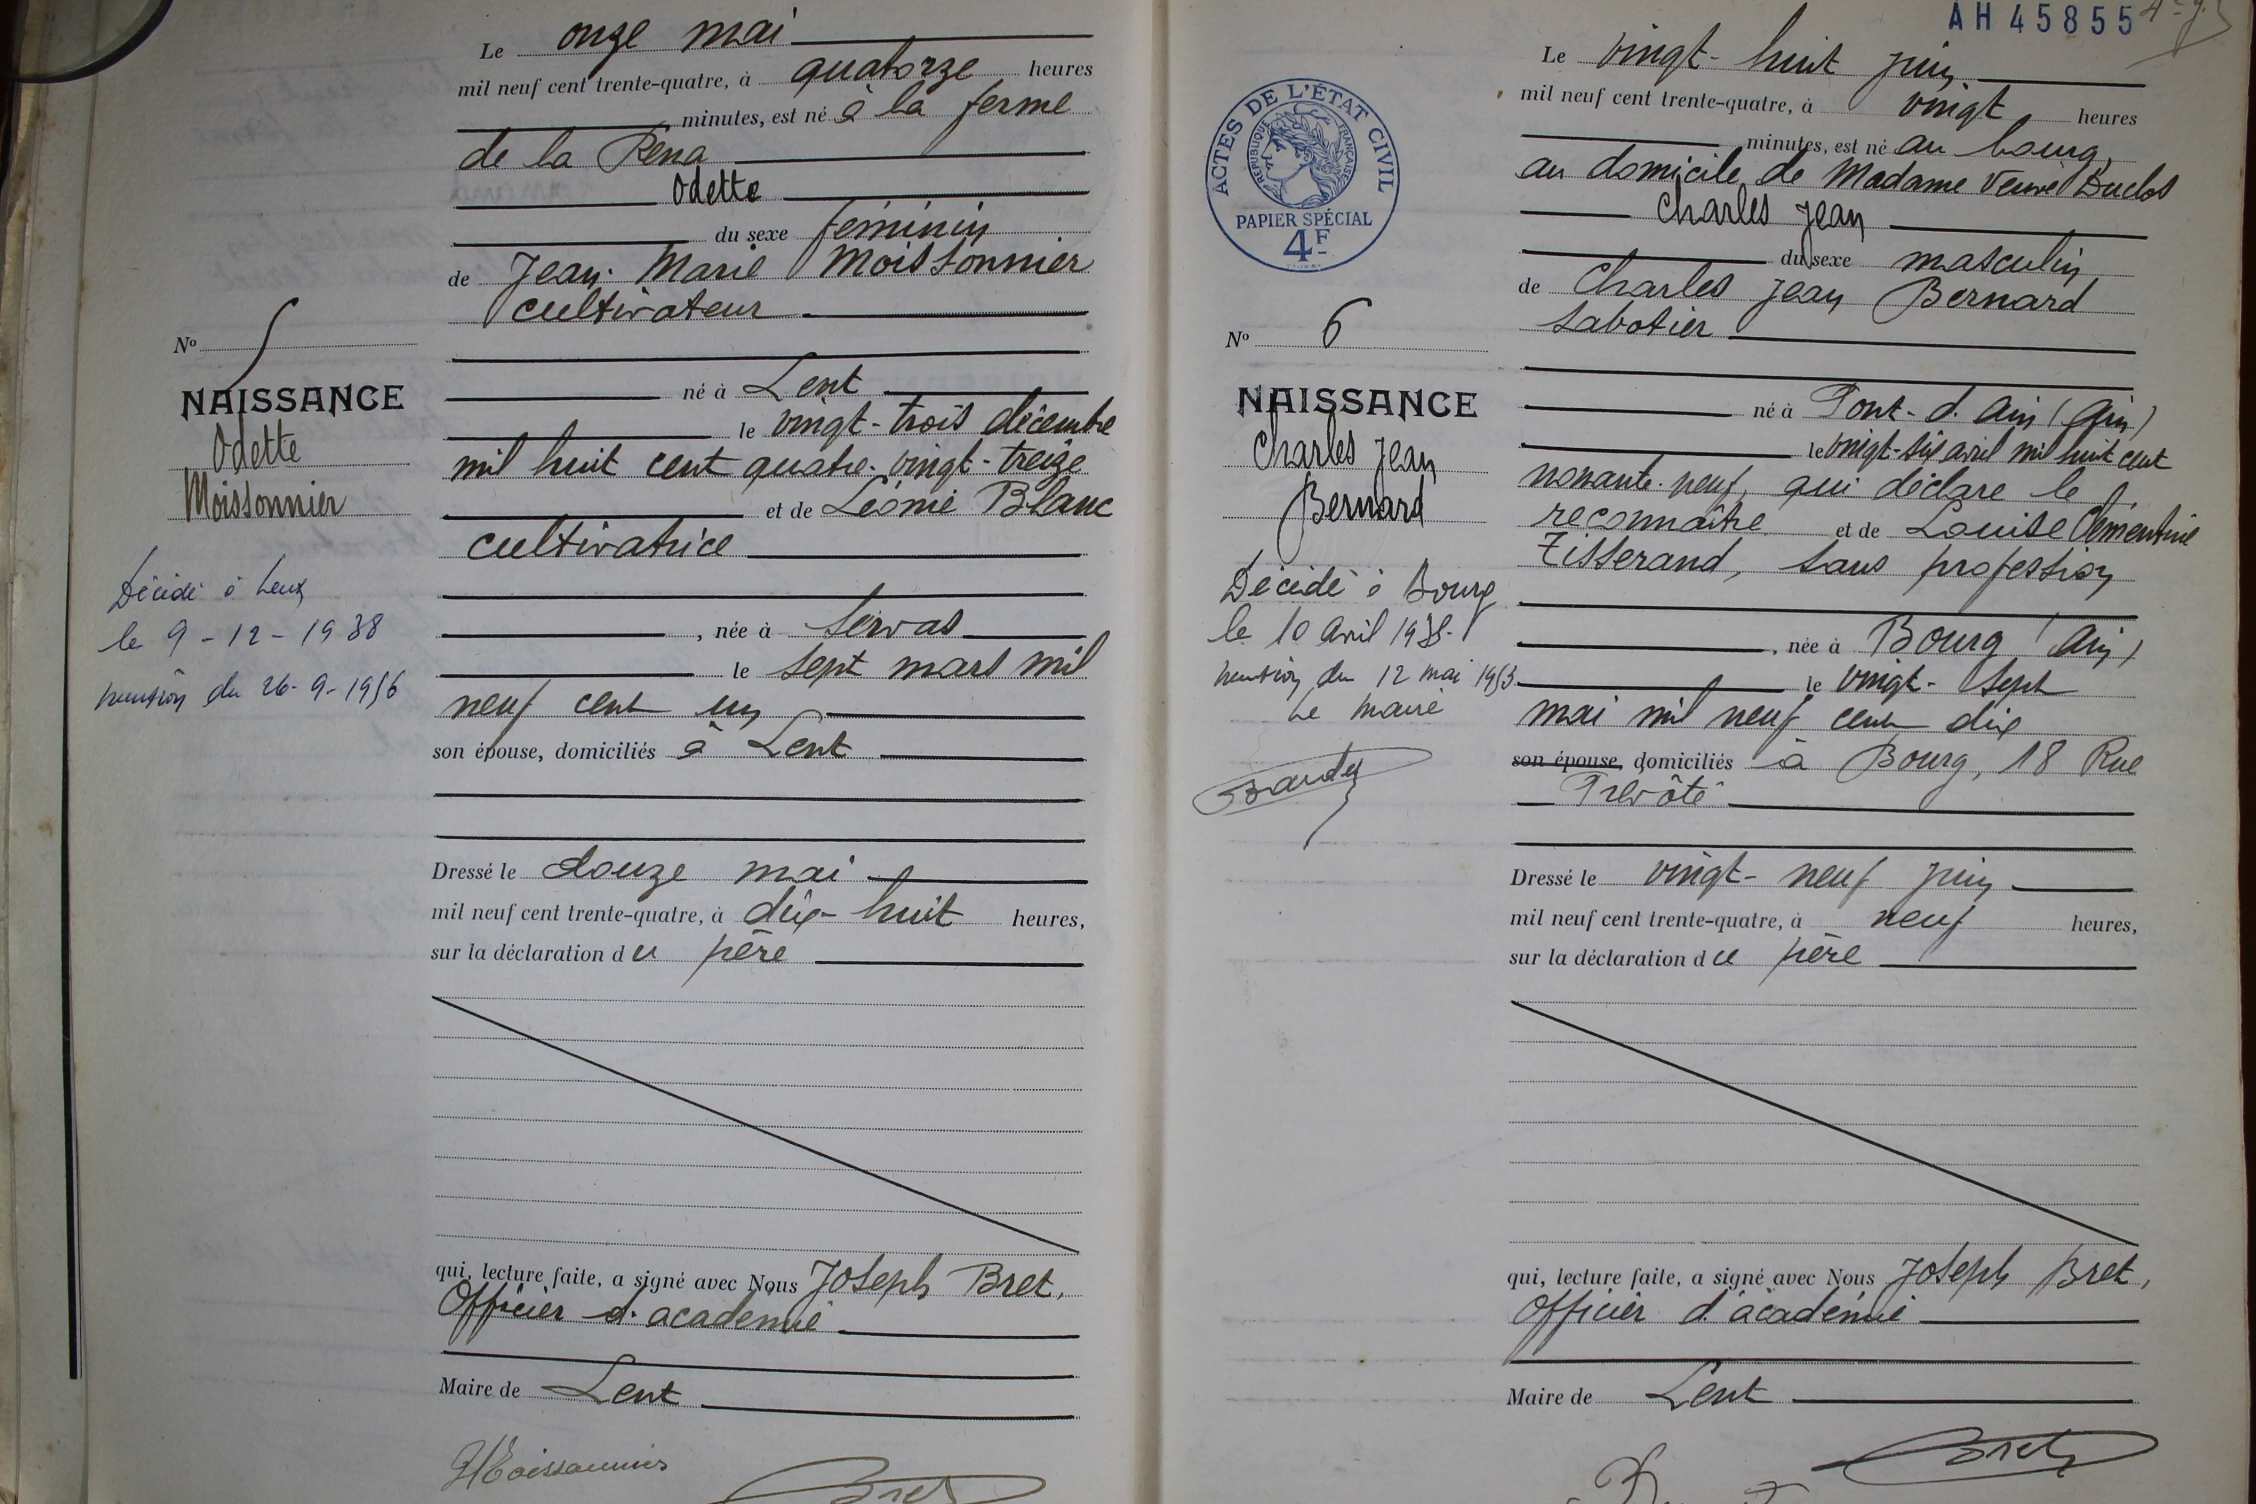 Le onze mai
mil neuf cent trente-quatre, à quatorze heures
minutes, est né à la ferme
de la Réna
Odette
du sexe féminin
de Jean-Marie Moissonnier
cultivateur
né à Lent
le vingt-trois décembre
mil huit cent quatre-vingt-treize
et de Léonie Blanc
cultivatrice
, née à Servas
le sept mars mil
neuf cent un
son épouse, domiciliés à Lent
Dressé le douze mai
mil neuf cent trente-quatre, à dix-huit heures,
sur la déclaration du père
qui, lecture faite, a signé avec Nous Joseph Bret,
Officier d'académie
Maire de Lent
Moissonnier
Bret
No 5
NAISSANCE
Odette
Moissonnier
Décidé à Lent
le 9-12-1938
mention du 26-9-1956
AH45855
Le vingt-huit juin
mil neuf cent trente-quatre, à vingt heures
minutes, est né au bourg,
au domicile de Madame Veuve Duclos
Charles Jean
du sexe masculin
de Charles Jean Bernard
sabotier
né à Pont-d'Ain (Ain)
le vingt-six avril mil huit cent
nonante-neuf, qui déclare le
reconnaître et de Louise Clémentine
Tisserand, sans profession
, née à Bourg (Ain)
le vingt-sept
mai mil neuf cent dix
son épouse, domiciliés à Bourg, 18 Rue
Prévôté
Dressé le vingt-neuf juin
mil neuf cent trente-quatre, à neuf heures,
sur la déclaration du père
qui, lecture faite, a signé avec Nous Joseph Bret,
Officier d'académie
Maire de Lent
Bret
ACTES DE L'ÉTAT CIVIL
RÉPUBLIQUE FRANÇAISE
PAPIER SPÉCIAL
4F
No 6
NAISSANCE
Charles Jean
Bernard
Décidé à Bourg
le 10 avril
mention du 12 mai 1953
Le maire